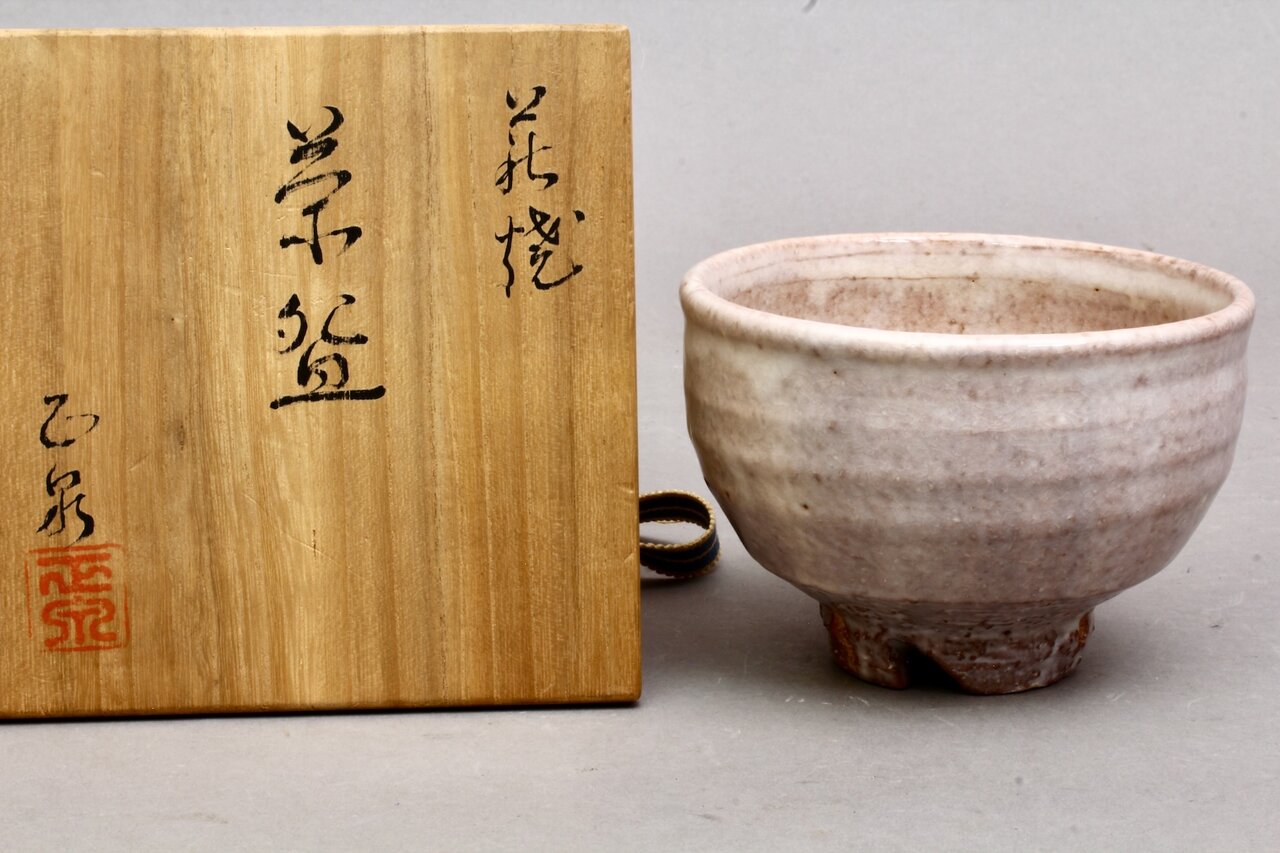 萩焼
茶盌
正泉
正泉